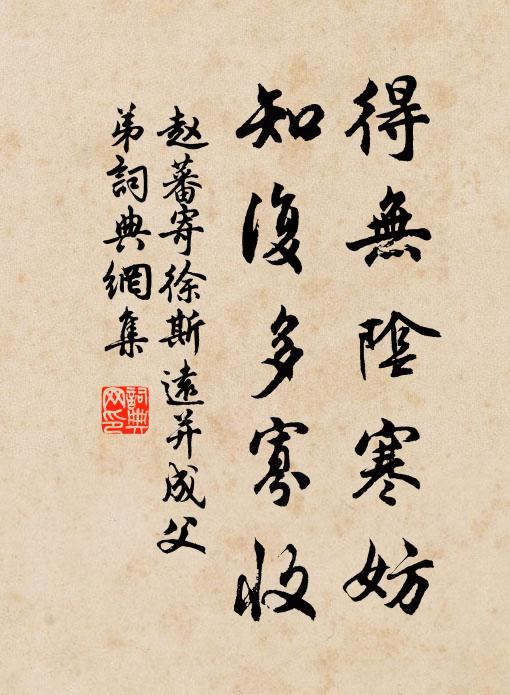 得無陰寒妨
知復多寡收
赵蕃寄徐斯遠并成父
弟詞典網集
詞典網印